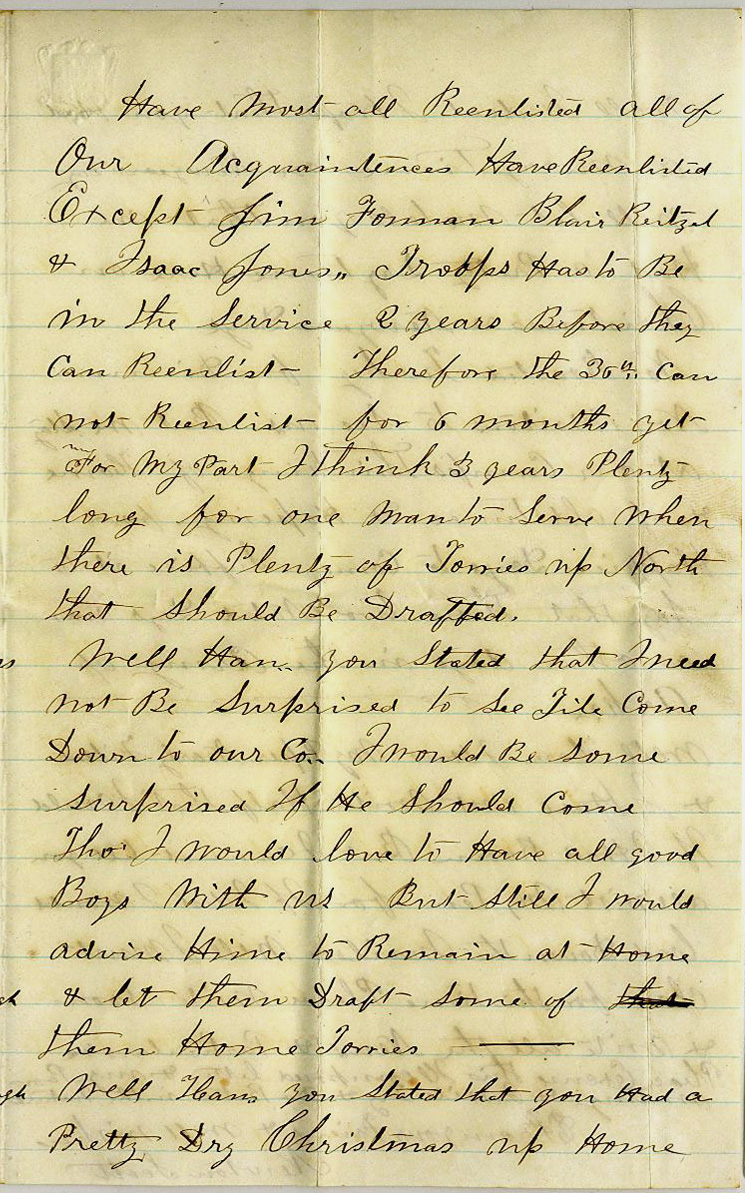 Have Most all Reenlisted all of
Our Acquaintences Have Reenlisted
Except Jim Forman Blair Reitzel
& Isaac Jones,, Troops Has to Be
in the Service 2 years Before they
Can Reenlist Therefore the 30th. Can
not Reenlist for 6 months yet
For My Part I think 3 years Plenty
long for one Man to Serve When
there is Plenty of Torries up North
that Should Be Drafted.
Well Han you Stated that I need
not Be Surprised to See Tile Come
Down to our Co. I would Be Some
Surprised If He Should Come
Tho' I would love to Have all good
Boys With us But Still I would
advise Hime to Remain at Home
& let them Draft Some of that
them Home Torries ———
Well Hans you Stated that you Had a
Pretty Dry Christmas up Home